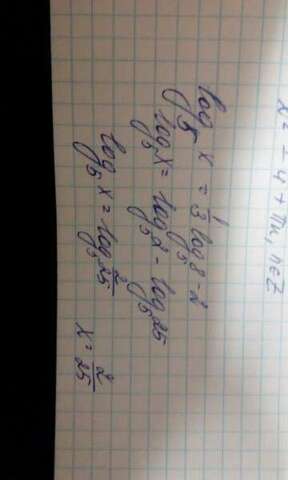 x² = 4 + πn, n∈Z
log₅ x = 1/3 log₅ 8 - 2
log₅ x = log₅ 2 - log₅ 25
log₅ x = log₅ 2/25   x = 2/25